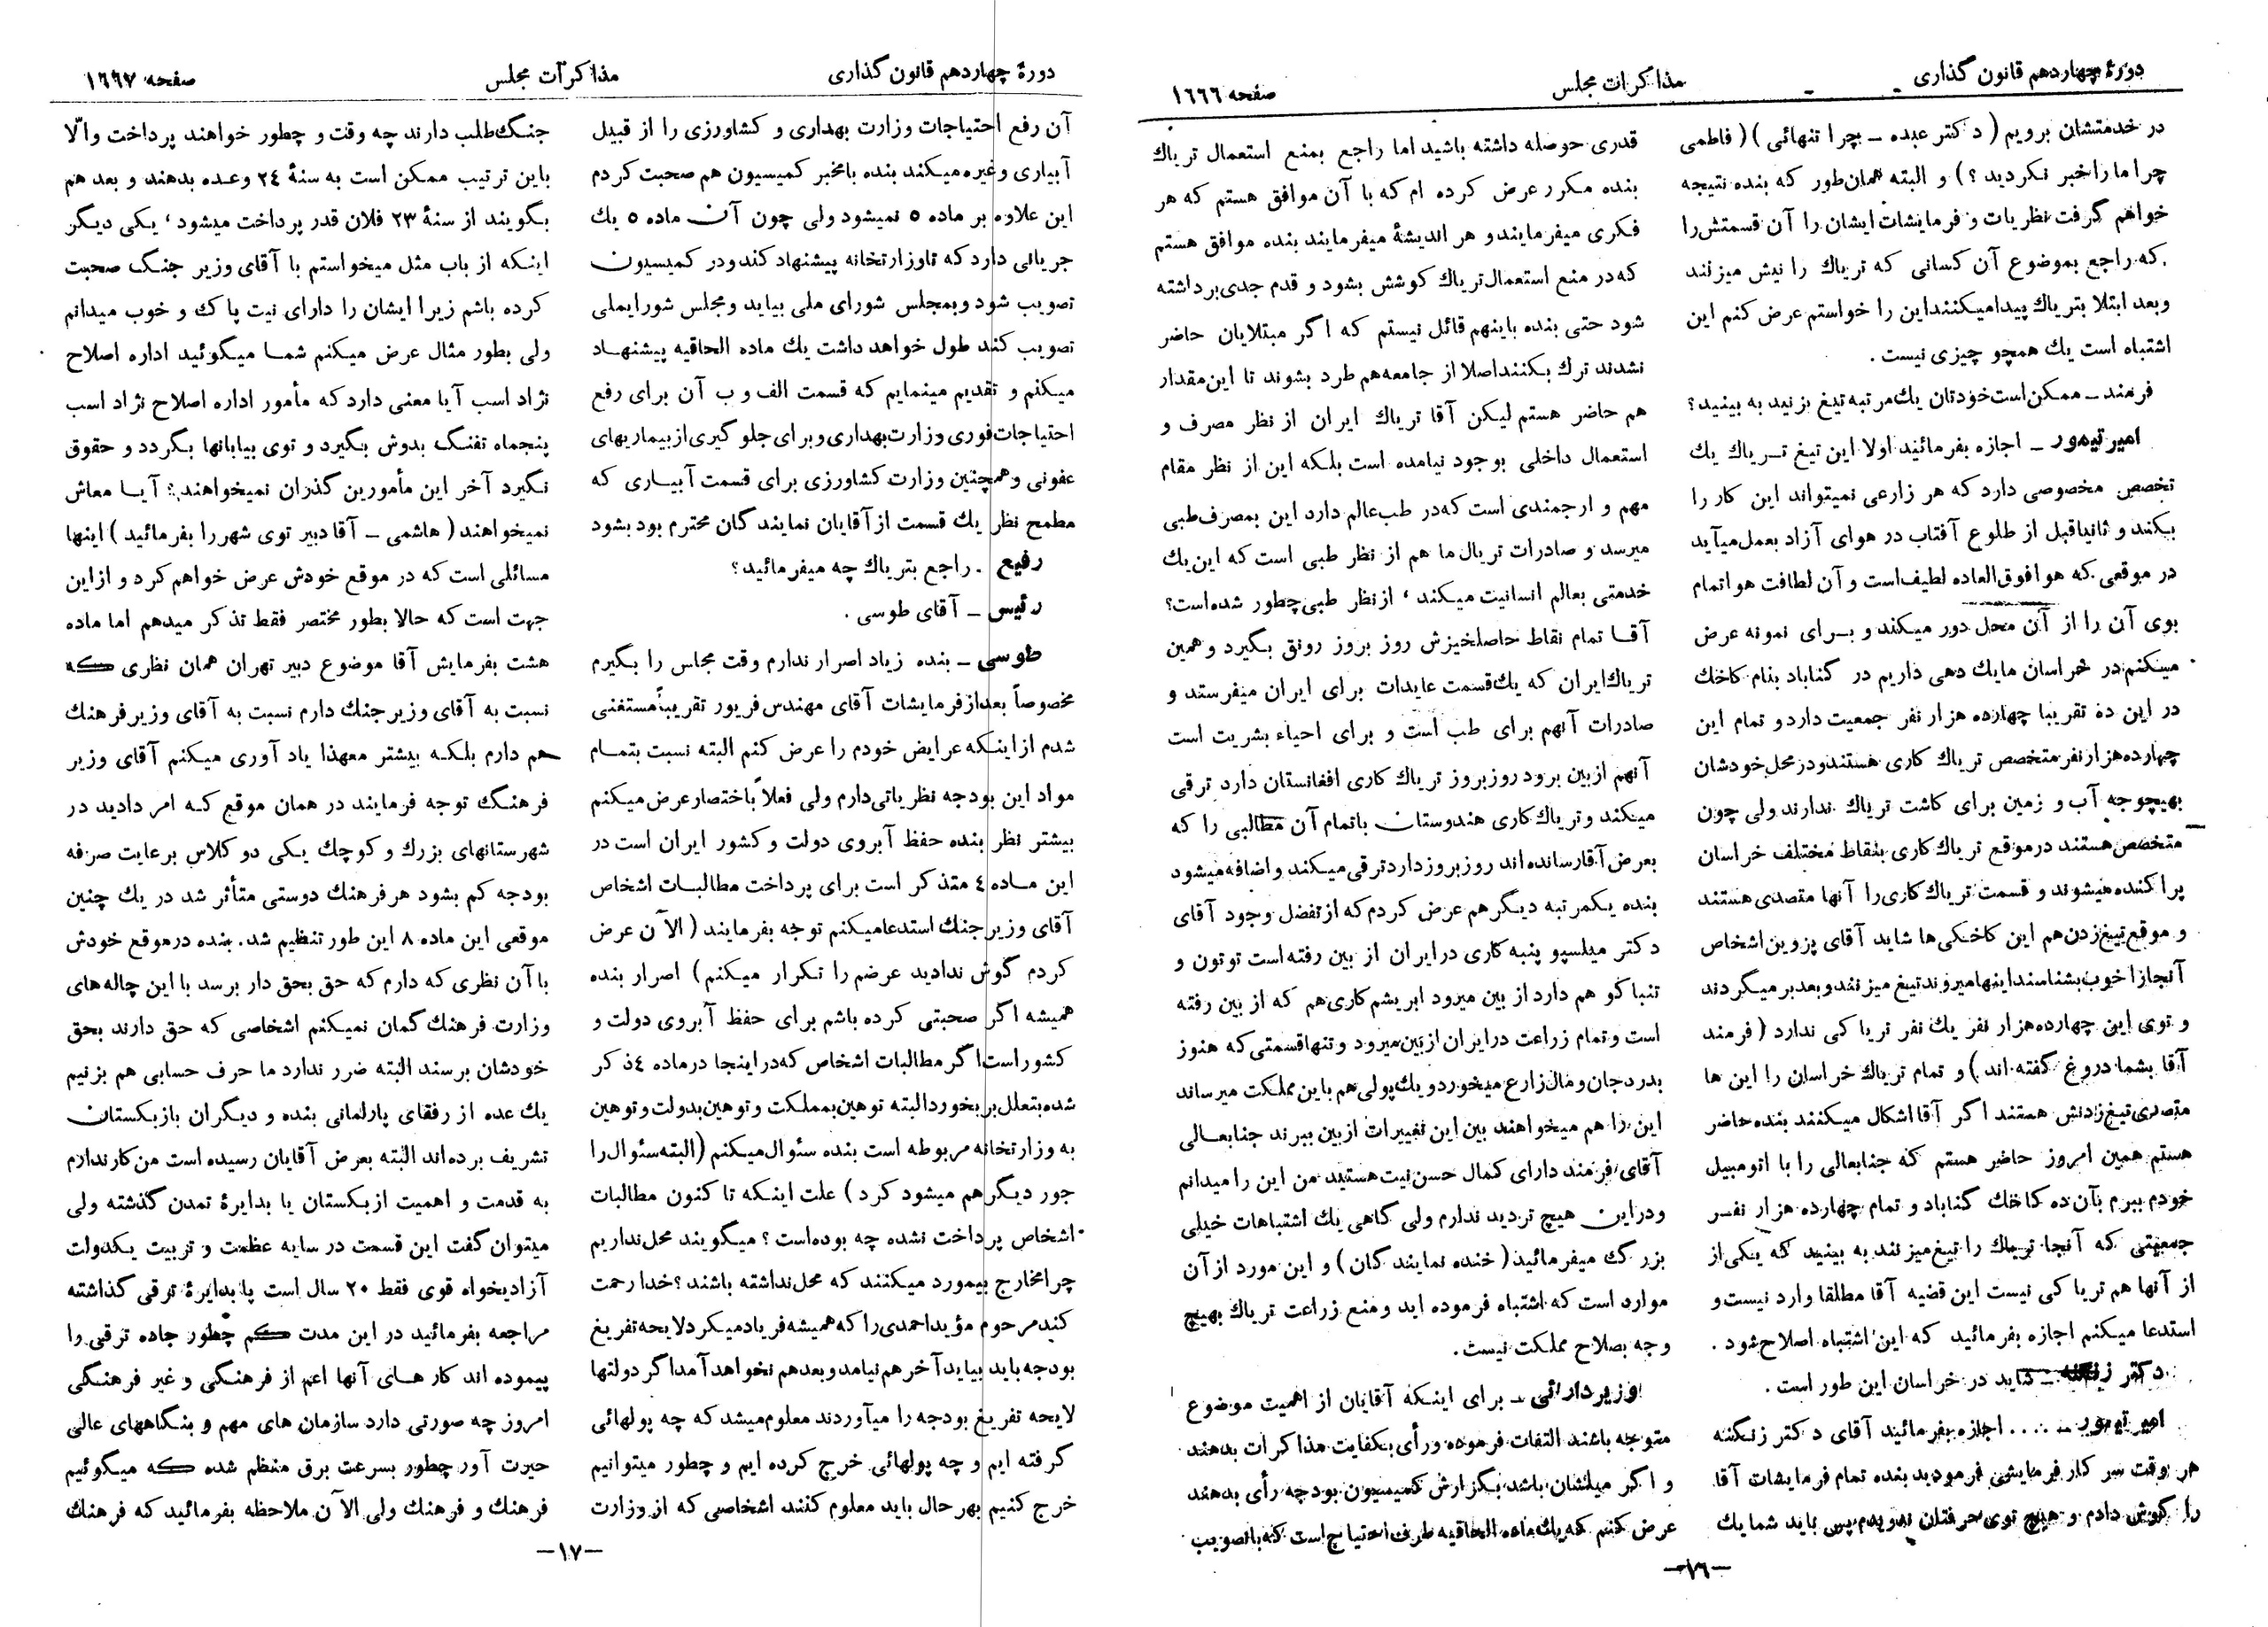 دورهٔ چهاردهم قانون گذاری
مذاکرات مجلس
صفحه ۱٦٦٦
در خدمتشان برویم ( دکتر عبده ـ چرا تنهائی ) ( فاطمی
چرا ما را خبر نکردید ؟ ) و البته همان‌طور که بنده نتیجه
خواهم گرفت نظریات و فرمایشات ایشان را آن قسمتش را
که راجع بموضوع آن کسانی که تریاك را نیش میزنند
وبعد ابتلا بتریاك پیدا میکنند این را خواستم عرض کنم این
اشتباه است یك همچو چیزی نیست .
فرمند ـ ممکن است خودتان یك مرتبه تیغ بزنید به بینید؟
امیرتیمور ـ اجازه بفرمائید اولا این تیغ تــریاك یك
تخصص مخصوصی دارد که هر زارعی نمیتواند این کار را
بکند و ثانیاً قبل از طلوع آفتاب در هوای آزاد بعمل میآید
در موقعی که هوا فوق‌العاده لطیف است و آن لطافت هوا تمام
بوی آن را از آن محل دور میکند و بــرای نمونه عرض
میکنم در خراسان ما یك دهی داریم در گناباد بنام کاخك
در این ده تقریبا چهارده هزار نفر جمعیت دارد و تمام این
چهارده هزار نفر متخصص تریاك کاری هستند و در محل خودشان
بهیچوجه آب و زمین برای کاشت تریاك ندارند ولی چون
متخصص هستند در موقع تریاك کاری بنقاط مختلف خراسان
پراکنده میشوند و قسمت تریاك کاری را آنها متصدی هستند
و موقع تیغ زدن هم این کاخکی‌ها شاید آقای پروین اشخاص
آنجا را خوب بشناسند اینها میروند تیغ میزنند و بعد بر میگردند
و توی این چهارده هزار نفر یك نفر تریاکی ندارد ( فرمند
آقا بشما دروغ گفته‌اند ) و تمام تریاك خراسان را این ها
متصدی تیغ زدنش هستند اگر آقا اشکال میکنند بنده حاضر
هستم همین امروز حاضر هستم که جنابعالی را با اتومبیل
خودم ببرم بآن ده کاخك گناباد و تمام چهارده هزار نفــر
جمعیتی که آنجا تریاك را تیغ میزنند به بینید که یکی از
از آنها هم تریاکی نیست این قضیه آقا مطلقا وارد نیست و
استدعا میکنم اجازه بفرمائید که این اشتباه اصلاح شود .
دکتر زنگنه ـ شاید در خراسان این طور است .
امیرتیمور ـ .... اجازه بفرمائید آقای دکتر زنگنه
هر وقت سر کار فرمایشی فرمودید بنده تمام فرمایشات آقا
را گوش دادم و هیچ توی حرفتان ندویدم پس باید شما یك
قدری حوصله داشته باشید اما راجع بمنع استعمال تریاك
بنده مکرر عرض کرده ام که با آن موافق هستم که هر
فکری میفرمایند و هر اندیشهٔ میفرمایند بنده موافق هستم
که در منع استعمال تریاك کوشش بشود و قدم جدی برداشته
شود حتی بنده باینهم قائل نیستم که اگر مبتلایان حاضر
نشدند ترك بکنند اصلا از جامعه هم طرد بشوند تا این مقدار
هم حاضر هستم لیکن آقا تریاك ایران از نظر مصرف و
استعمال داخلی بوجود نیامده است بلکه این از نظر مقام
مهم و ارجمندی است که در طب عالم دارد این بمصرف طبی
میرسد و صادرات تریاك ما هم از نظر طبی است که این یك
خدمتی بعالم انسانیت میکند ، از نظر طبی چطور شده است؟
آقــا تمام نقاط حاصلخیزش روز بروز رونق بگیرد و همین
تریاك ایران که یك قسمت عایدات برای ایران میفرستد و
صادرات آنهم برای طب است و برای احیاء بشریت است
آنهم از بین برود روز بروز تریاك کاری افغانستان دارد ترقی
میکند و تریاك کاری هندوستان باتمام آن مطالبی را که
بعرض آقا رسانده‌اند روز بروز دارد ترقی میکند و اضافه میشود
بنده یکمرتبه دیگر هم عرض کردم که از تفضل وجود آقای
دکتر میلسپو پنبه کاری در ایران از بین رفته است توتون و
تنباکو هم دارد از بین میرود ابریشم کاری هم که از بین رفته
است و تمام زراعت در ایران از بین میرود و تنها قسمتی که هنوز
بدرد جان و مال زارع میخورد و یك پولی هم باین مملکت میرساند
این را هم میخواهند بین این تغییرات از بین ببرند جنابعــالی
آقای فرمند دارای کمال حسن نیت هستید من این را میدانم
و در این هیچ تردید ندارم ولی گاهی یك اشتباهات خیلی
بزرگ میفرمائید ( خنده نمایندگان ) و این مورد از آن
موارد است که اشتباه فرموده اید و منع زراعت تریاك بهیچ
وجه بصلاح مملکت نیست .
وزیر دارائی ـ برای اینکه آقایان از اهمیت موضوع
متوجه باشند التفات فرموده و رأی بکفایت مذاکرات بدهند
و اگر میلشان باشد بگزارش کمیسیون بودجه رأی بدهند
عرض کنم که یك ماده الحاقیه طرف احتیاج است که باتصویب
ـ۱٦ـ
دورهٔ چهاردهم قانون گذاری
مذاکرات مجلس
صفحه ۱٦٦۷
آن رفع احتیاجات وزارت بهداری و کشاورزی را از قبیل
آبیاری و غیره میکند بنده بامخبر کمیسیون هم صحبت کردم
این علاوه بر ماده ۵ نمیشود ولی چون آن ماده ۵ یك
جریانی دارد که تاوزارتخانه پیشنهاد کند و در کمیسیون
تصویب شود و بمجلس شورای ملی بیاید و مجلس شورایملی
تصویب کند طول خواهد داشت یك ماده الحاقیه پیشنهــاد
میکنم و تقدیم مینمایم که قسمت الف و ب آن برای رفع
احتیاجات فوری وزارت بهداری و برای جلوگیری از بیماریهای
عفونی و همچنین وزارت کشاورزی برای قسمت آبیــاری که
مطمح نظر یك قسمت از آقایان نمایندگان محترم بود بشود
رفیع . راجع بتریاك چه میفرمائید؟
رئیس ـ آقای طوسی .
طوسی ـ بنده زیاد اصرار ندارم وقت مجلس را بگیرم
مخصوصاً بعد از فرمایشات آقای مهندس فریور تقریباً مستغنی
شدم از اینکه عرایض خودم را عرض کنم البته نسبت بتمــام
مواد این بودجه نظریاتی دارم ولی فعلاً باختصار عرض میکنم
بیشتر نظر بنده حفظ آبروی دولت و کشور ایران است در
این مــاده ٤ متذکر است برای پرداخت مطالبــات اشخاص
آقای وزیر جنك استدعا میکنم توجه بفرمایند ( الآن عرض
کردم گوش ندادید عرضم را تکرار میکنم ) اصرار بنده
همیشه اگر صحبتی کرده باشم برای حفظ آبروی دولت و
کشور است اگر مطالبات اشخاص که در اینجا در ماده ٤ ذکر
شده بتعلل بر بخورد البته توهین بمملکت و توهین بدولت و توهین
به وزارتخانه مربوطه است بنده سئوال میکنم ( البته سئوال را
جور دیگر هم میشود کرد ) علت اینکه تا کنون مطالبات
اشخاص پرداخت نشده چه بوده‌است ؟ میگویند محل نداریم
چرا مخارج بیمورد میکنند که محل نداشته باشند ؟ خدا رحمت
کند مرحوم مؤید احمدی را که همیشه فریاد میکرد لایحه تفریغ
بودجه باید بیاید آخر هم نیامد و بعد هم نخواهد آمد اگر دولتها
لایحه تفریغ بودجه را میآوردند معلوم میشد که چه پولهائی
گرفته ایم و چه پولهائی خرج کرده ایم و چطور میتوانیم
خرج کنیم بهر حال باید معلوم کنند اشخاصی که از وزارت
جنگ طلب دارند چه وقت و چطور خواهند پرداخت والّا
باین ترتیب ممکن است به سنهٔ ۲٤ وعــده بدهند و بعد هم
بگویند از سنهٔ ۲۳ فلان قدر پرداخت میشود ، یکی دیگر
اینکه از باب مثل میخواستم با آقای وزیر جنگ صحبت
کرده باشم زیرا ایشان را دارای نیت پاك و خوب میدانم
ولی بطور مثال عرض میکنم شمــا میگوئید اداره اصلاح
نژاد اسب آیا معنی دارد که مأمور اداره اصلاح نژاد اسب
پنجماه تفنگ بدوش بگیرد و توی بیابانها بگردد و حقوق
نگیرد آخر این مأمورین گذران نمیخواهند ؟ آیــا معاش
نمیخواهند ( هاشمی ـ آقا دبیر توی شهر را بفرمائید ) اینها
مسائلی است که در موقع خودش عرض خواهم کرد و از این
جهت است که حالا بطور مختصر فقط تذکر میدهم اما ماده
هشت بفرمایش آقا موضوع دبیر تهران همان نظری کــه
نسبت به آقای وزیر جنك دارم نسبت به آقای وزیر فرهنك
هم دارم بلکــه بیشتر معهذا یاد آوری میکنم آقای وزیر
فرهنگ توجه فرمایند در همان موقع کــه امر دادید در
شهرستانهای بزرك و کوچك یکی دو کلاس برعایت صرفه
بودجه کم بشود هر فرهنك دوستی متأثر شد در یك چنین
موقعی این ماده ۸ این طور تنظیم شد . بنده در موقع خودش
با آن نظری که دارم که حق بحق دار برسد با این چاله‌های
وزارت فرهنك گمان نمیکنم اشخاصی که حق دارند بحق
خودشان برسند البته ضرر ندارد ما حرف حسابی هم بزنیم
یك عده از رفقای پارلمانی بنده و دیگران بازبکستان
تشریف برده‌اند البته بعرض آقایان رسیده است من کار ندارم
به قدمت و اهمیت ازبکستان یا بدایرهٔ تمدن گذشته ولی
میتوان گفت این قسمت در سایه عظمت و تربیت یکدولت
آزادیخواه قوی فقط ۲۰ سال است پا بدایرهٔ ترقی گذاشته
مراجعه بفرمائید در این مدت کم چطور جاده ترقی را
پیموده اند کار هــای آنها اعم از فرهنگی و غیر فرهنگی
امروز چه صورتی دارد سازمان های مهم و بنگاههای عالی
حیرت آور چطور بسرعت برق منظم شده کــه میگوئیم
فرهنك و فرهنك ولی الآن ملاحظه بفرمائید که فرهنك
ـ۱۷ـ